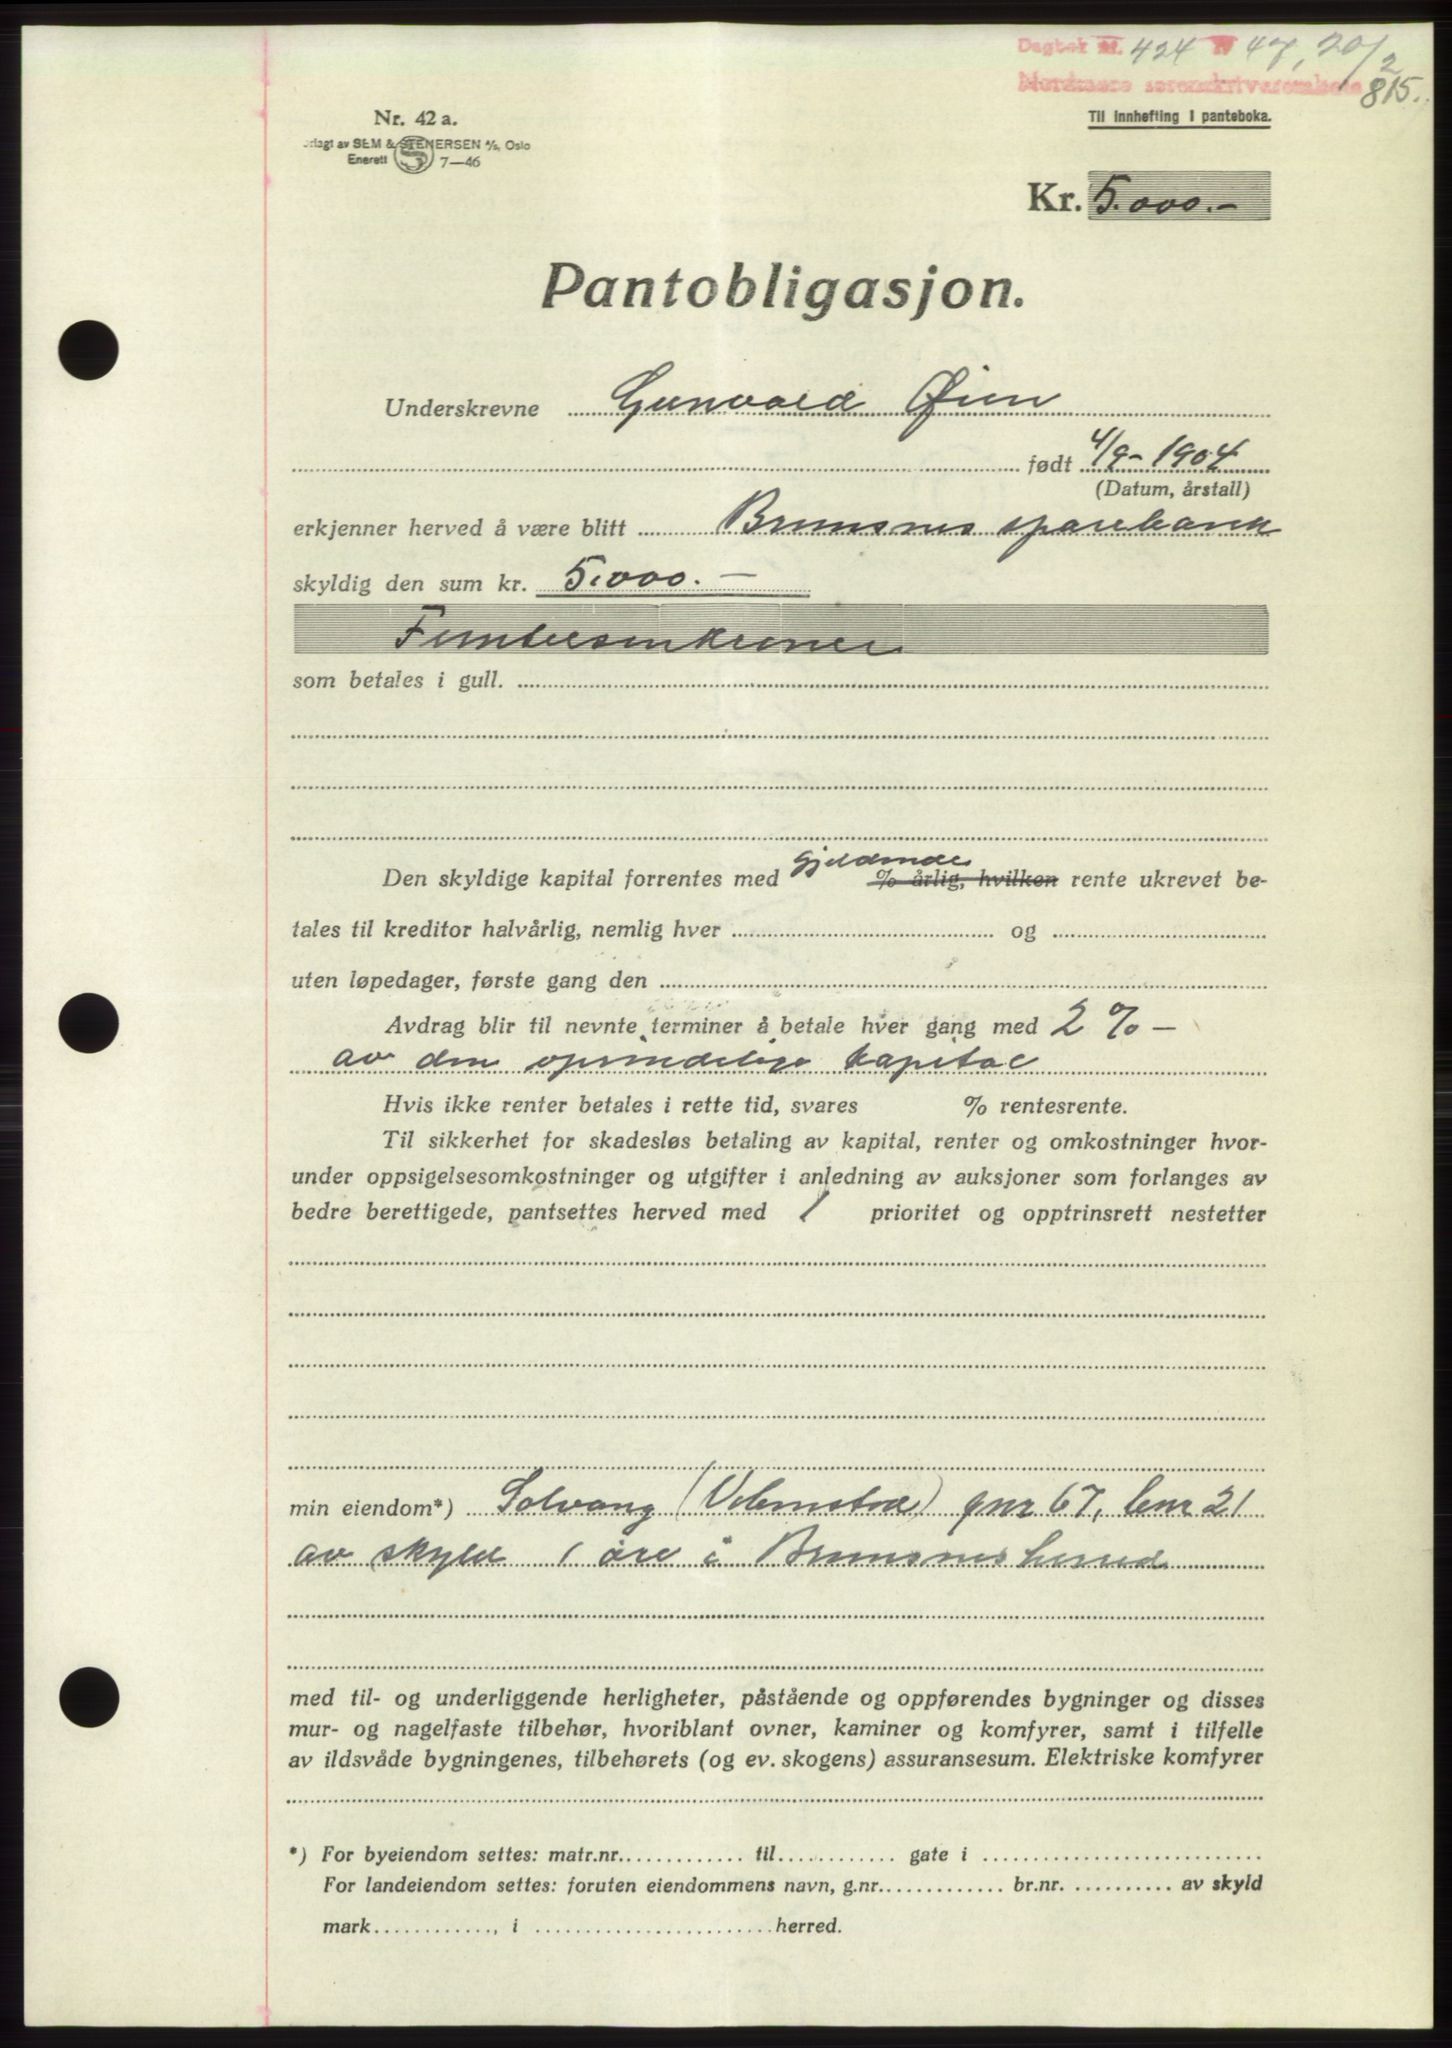 Dagbok nr. 424 19 47, 20/2
Nordmøre sorenskriverembete 815.
Nr. 42 a.
Til innhefting i panteboka.
rlagt av SEM & STENERSEN A/S, Oslo
Enerett 7—46
Kr. 5.000.-
Pantobligasjon.
Underskrevne Gunvald Øien
født 4/9-1904
(Datum, årstall)
erkjenner herved å være blitt Bremsnes sparebank
skyldig den sum kr. 5.000.-
Femtusenkroner
som betales i gull.
Den skyldige kapital forrentes med gjeldende % årlig, hvilken rente ukrevet be-
tales til kreditor halvårlig, nemlig hver og
uten løpedager, første gang den
Avdrag blir til nevnte terminer å betale hver gang med 2 % -
av den oprindelige kapital
Hvis ikke renter betales i rette tid, svares % rentesrente.
Til sikkerhet for skadesløs betaling av kapital, renter og omkostninger hvor-
under oppsigelsesomkostninger og utgifter i anledning av auksjoner som forlanges av
bedre berettigede, pantsettes herved med 1 prioritet og opptrinsrett nestetter
min eiendom*) Solvang ( ) gnr 67, bnr 21
av skyld 1 øre i Bremsnes herred
med til- og underliggende herligheter, påstående og oppførendes bygninger og disses
mur- og nagelfaste tilbehør, hvoriblant ovner, kaminer og komfyrer, samt i tilfelle
av ildsvåde bygningenes, tilbehørets (og ev. skogens) assuransesum. Elektriske komfyrer
*) For byeiendom settes: matr.nr. til gate i
For landeiendom settes: foruten eiendommens navn, g.nr. br.nr. av skyld
mark , i herred.